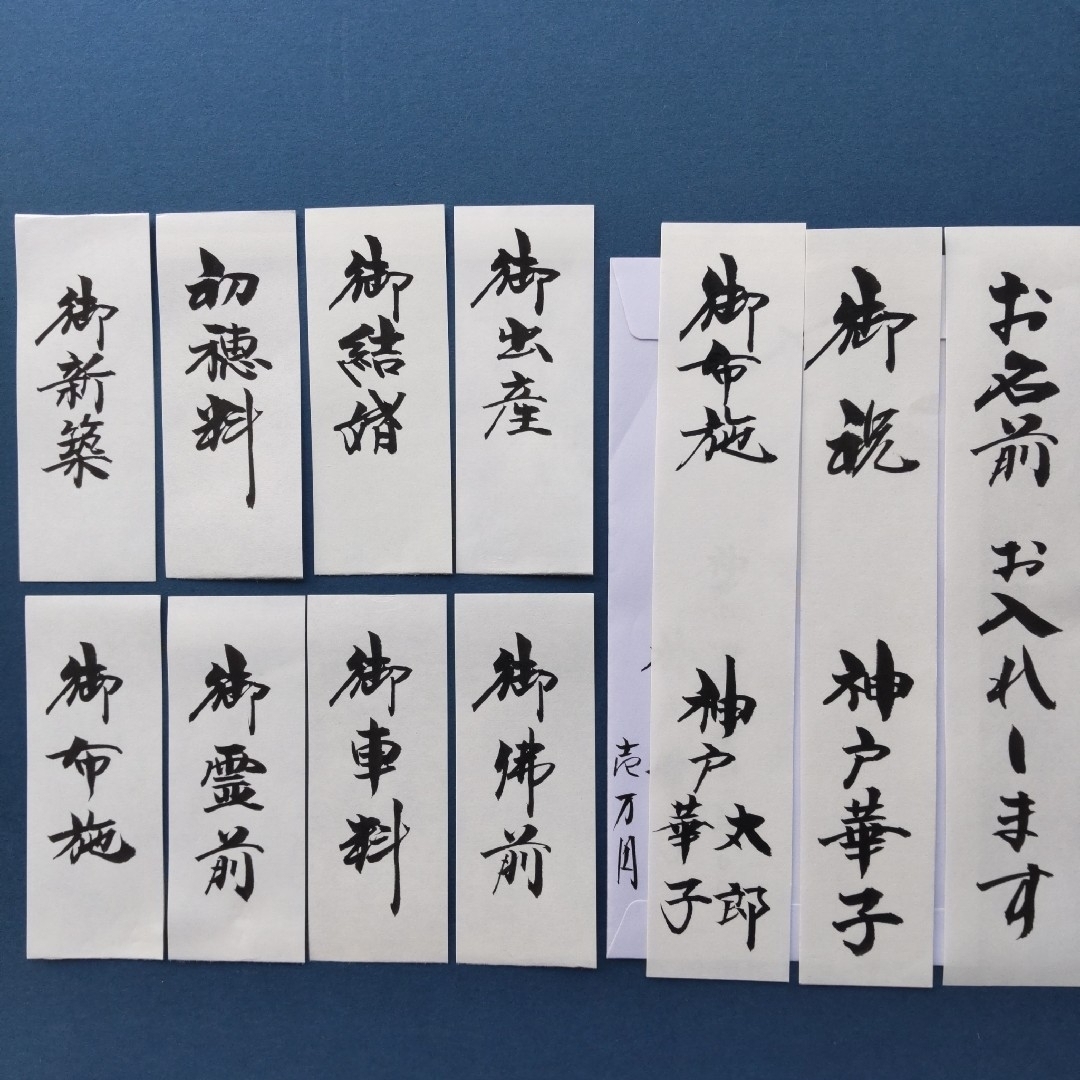 お名前 お入れします
御祝
神戸華子
御布施
神戸
太郎
華子
壱万円
御出産
御結婚
初穂料
御新築
御佛前
御車料
御霊前
御布施